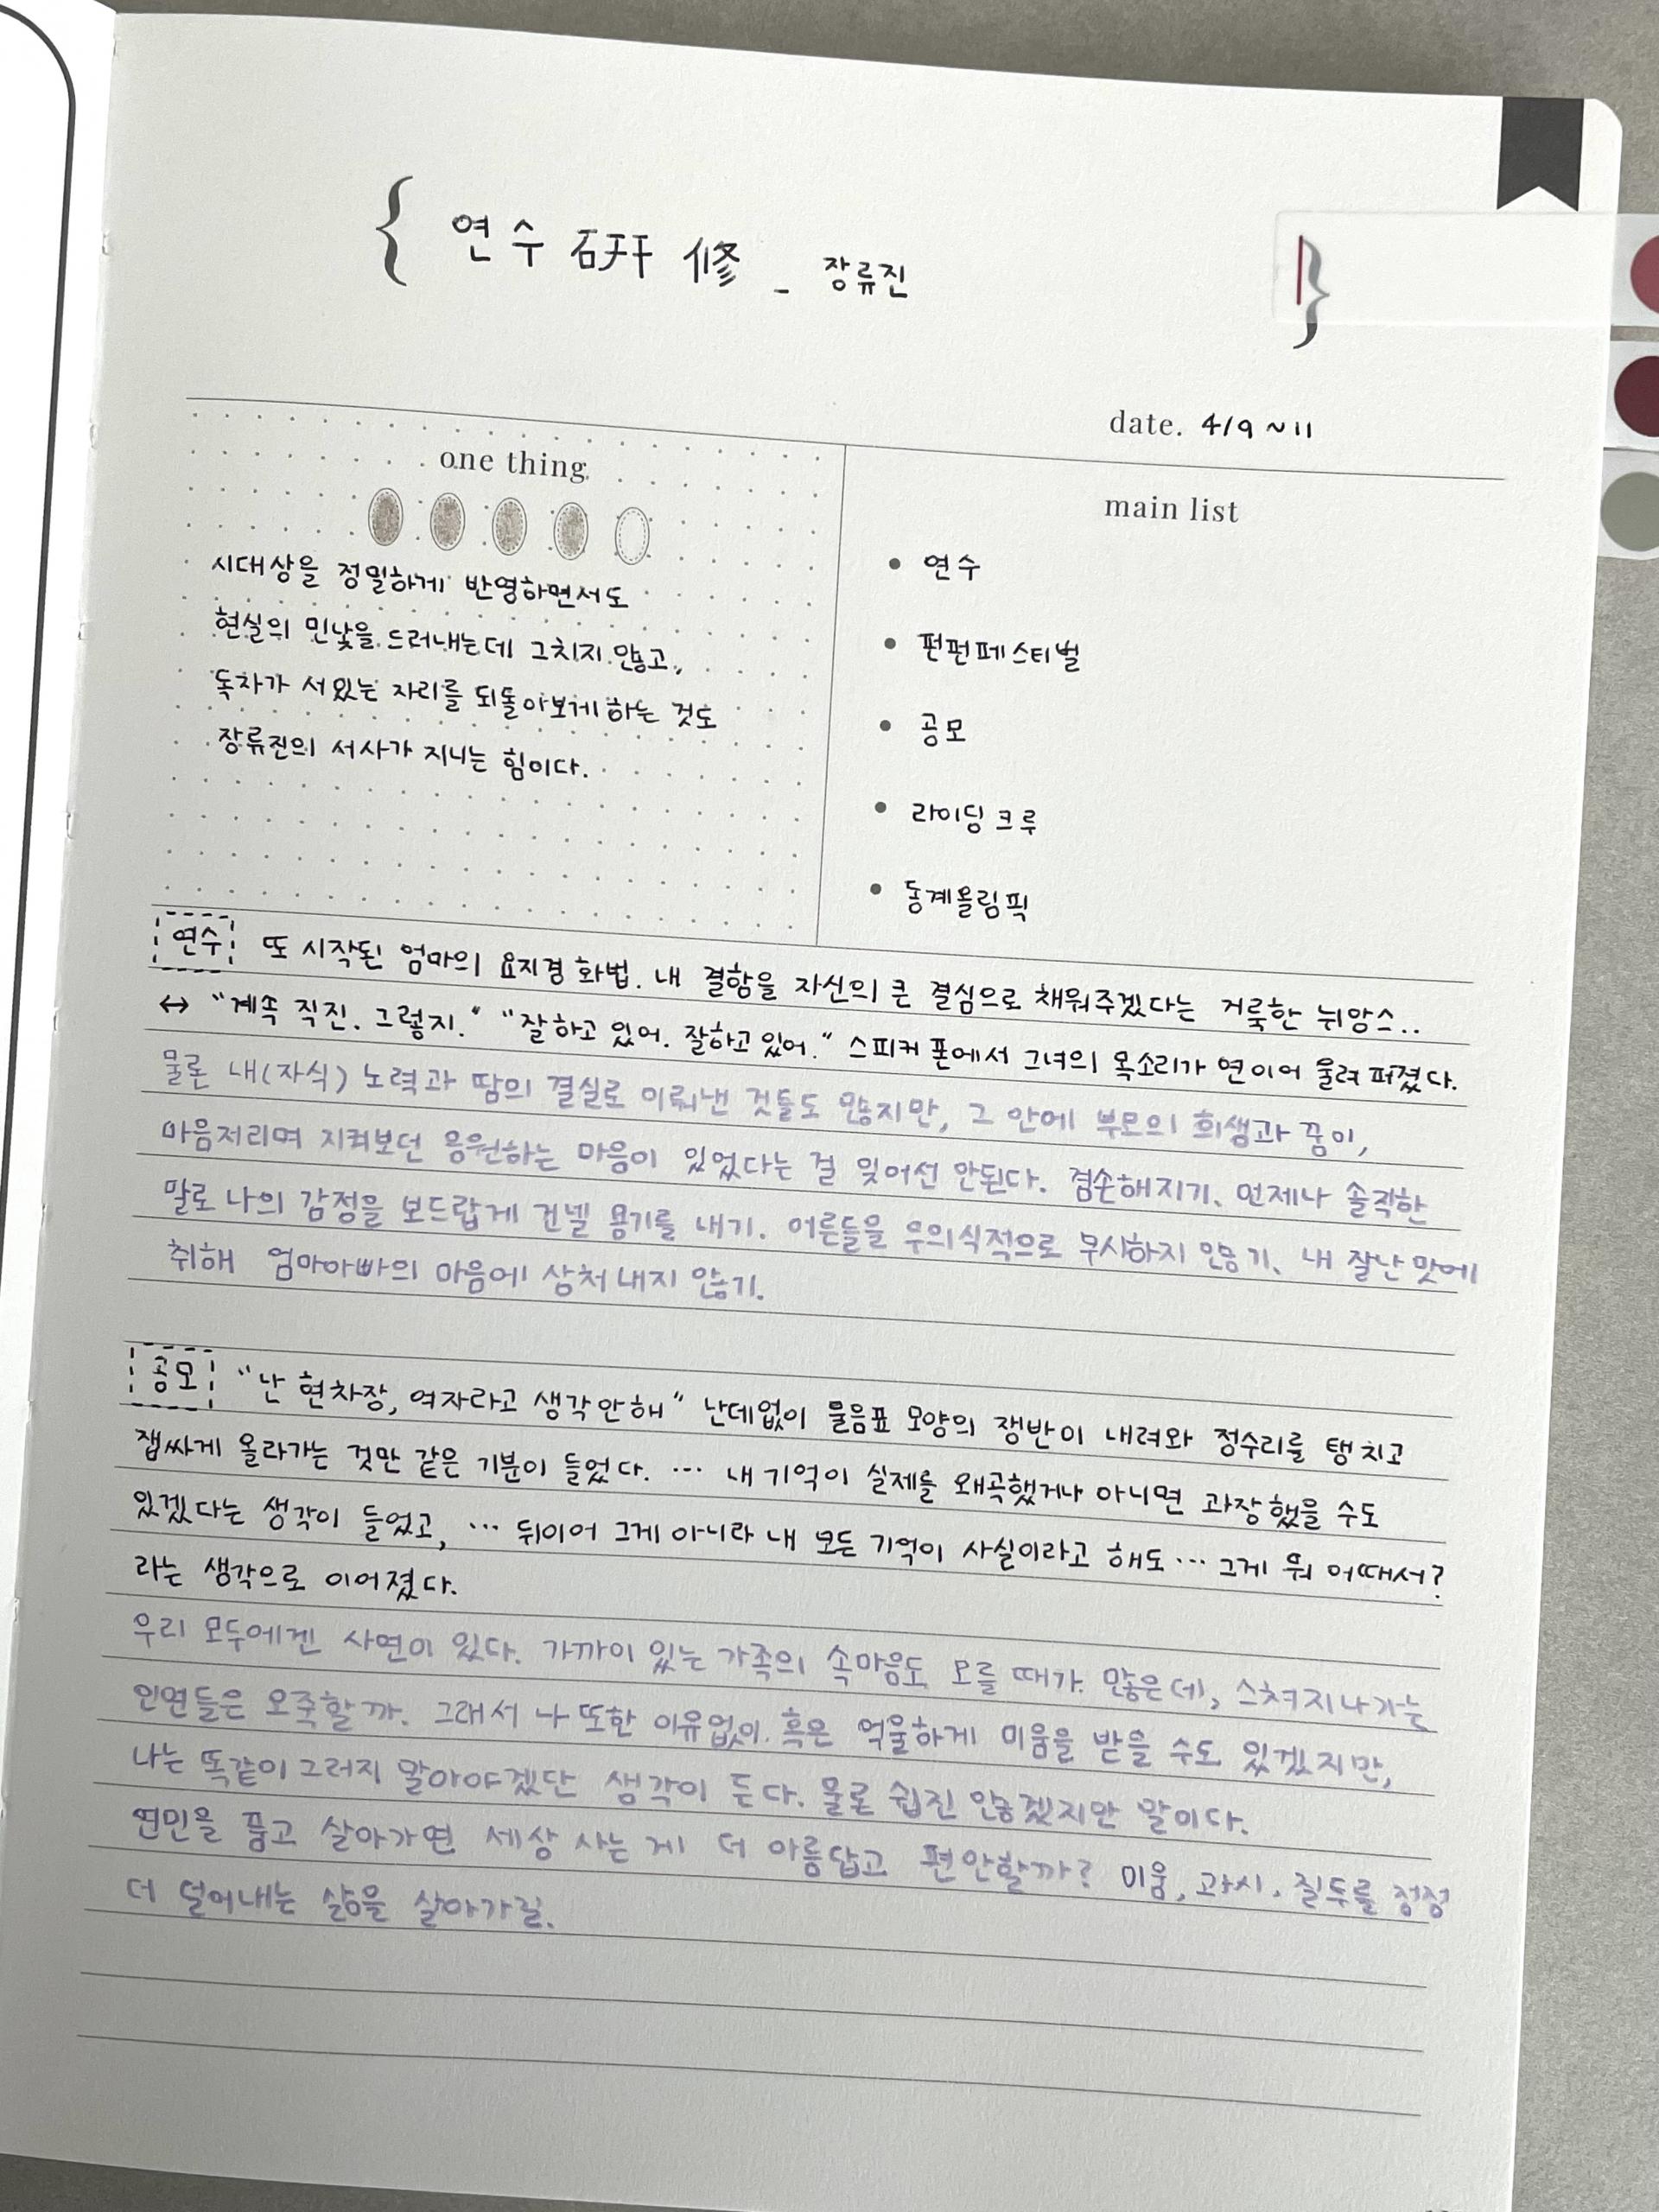 { 연수 硏修 _ 장류진 }
date. 4/9 ~ 11
one thing
시대상을 정밀하게 반영하면서도
현실의 민낯을 드러내는데 그치지 않고,
독차가 서있는 자리를 되돌아보게 하는 것도
장류진의 서사가 지니는 힘이다.
main list
• 연수
• 펀펀페스티벌
• 공모
• 라이딩 크루
• 동계올림픽
연수 또 시작된 엄마의 요지경 화법. 내 결함을 자신의 큰 결심으로 채워주겠다는 거룩한 뉘앙스..
↔ "계속 직진. 그렇지." "잘하고 있어. 잘하고 있어." 스피커폰에서 그녀의 목소리가 연이어 울려 퍼졌다.
물론 내(자식) 노력과 땀의 결실로 이뤄낸 것들도 많지만, 그 안에 부모의 희생과 꿈이,
마음저리며 지켜보던 응원하는 마음이 있었다는 걸 잊어선 안된다. 겸손해지기. 언제나 솔직한
말로 나의 감정을 보드랍게 건넬 용기를 내기. 어른들을 무의식적으로 무시하지 않기. 내 잘난 맛에
취해 엄마아빠의 마음에 상처 내지 않기.
공모 "난 현차장, 여자라고 생각 안해" 난데없이 물음표 모양의 쟁반이 내려와 정수리를 탱 치고
잽싸게 올라가는 것만 같은 기분이 들었다. … 내 기억이 실제를 왜곡했거나 아니면 과장했을 수도
있겠다는 생각이 들었고, … 뒤이어 그게 아니라 내 모든 기억이 사실이라고 해도 … 그게 뭐 어때서?
라는 생각으로 이어졌다.
우리 모두에겐 사연이 있다. 가까이 있는 가족의 속마음도 모를 때가 많은데, 스쳐지나가는
인연들은 오죽할까. 그래서 나 또한 이유없이 혹은 억울하게 미움을 받을 수도 있겠지만,
나는 똑같이 그러지 말아야겠단 생각이 든다. 물론 쉽진 않겠지만 말이다.
연민을 품고 살아가면 세상 사는 게 더 아름답고 편안할까? 미움, 과시, 질투를 점점
더 덜어내는 삶을 살아가길.